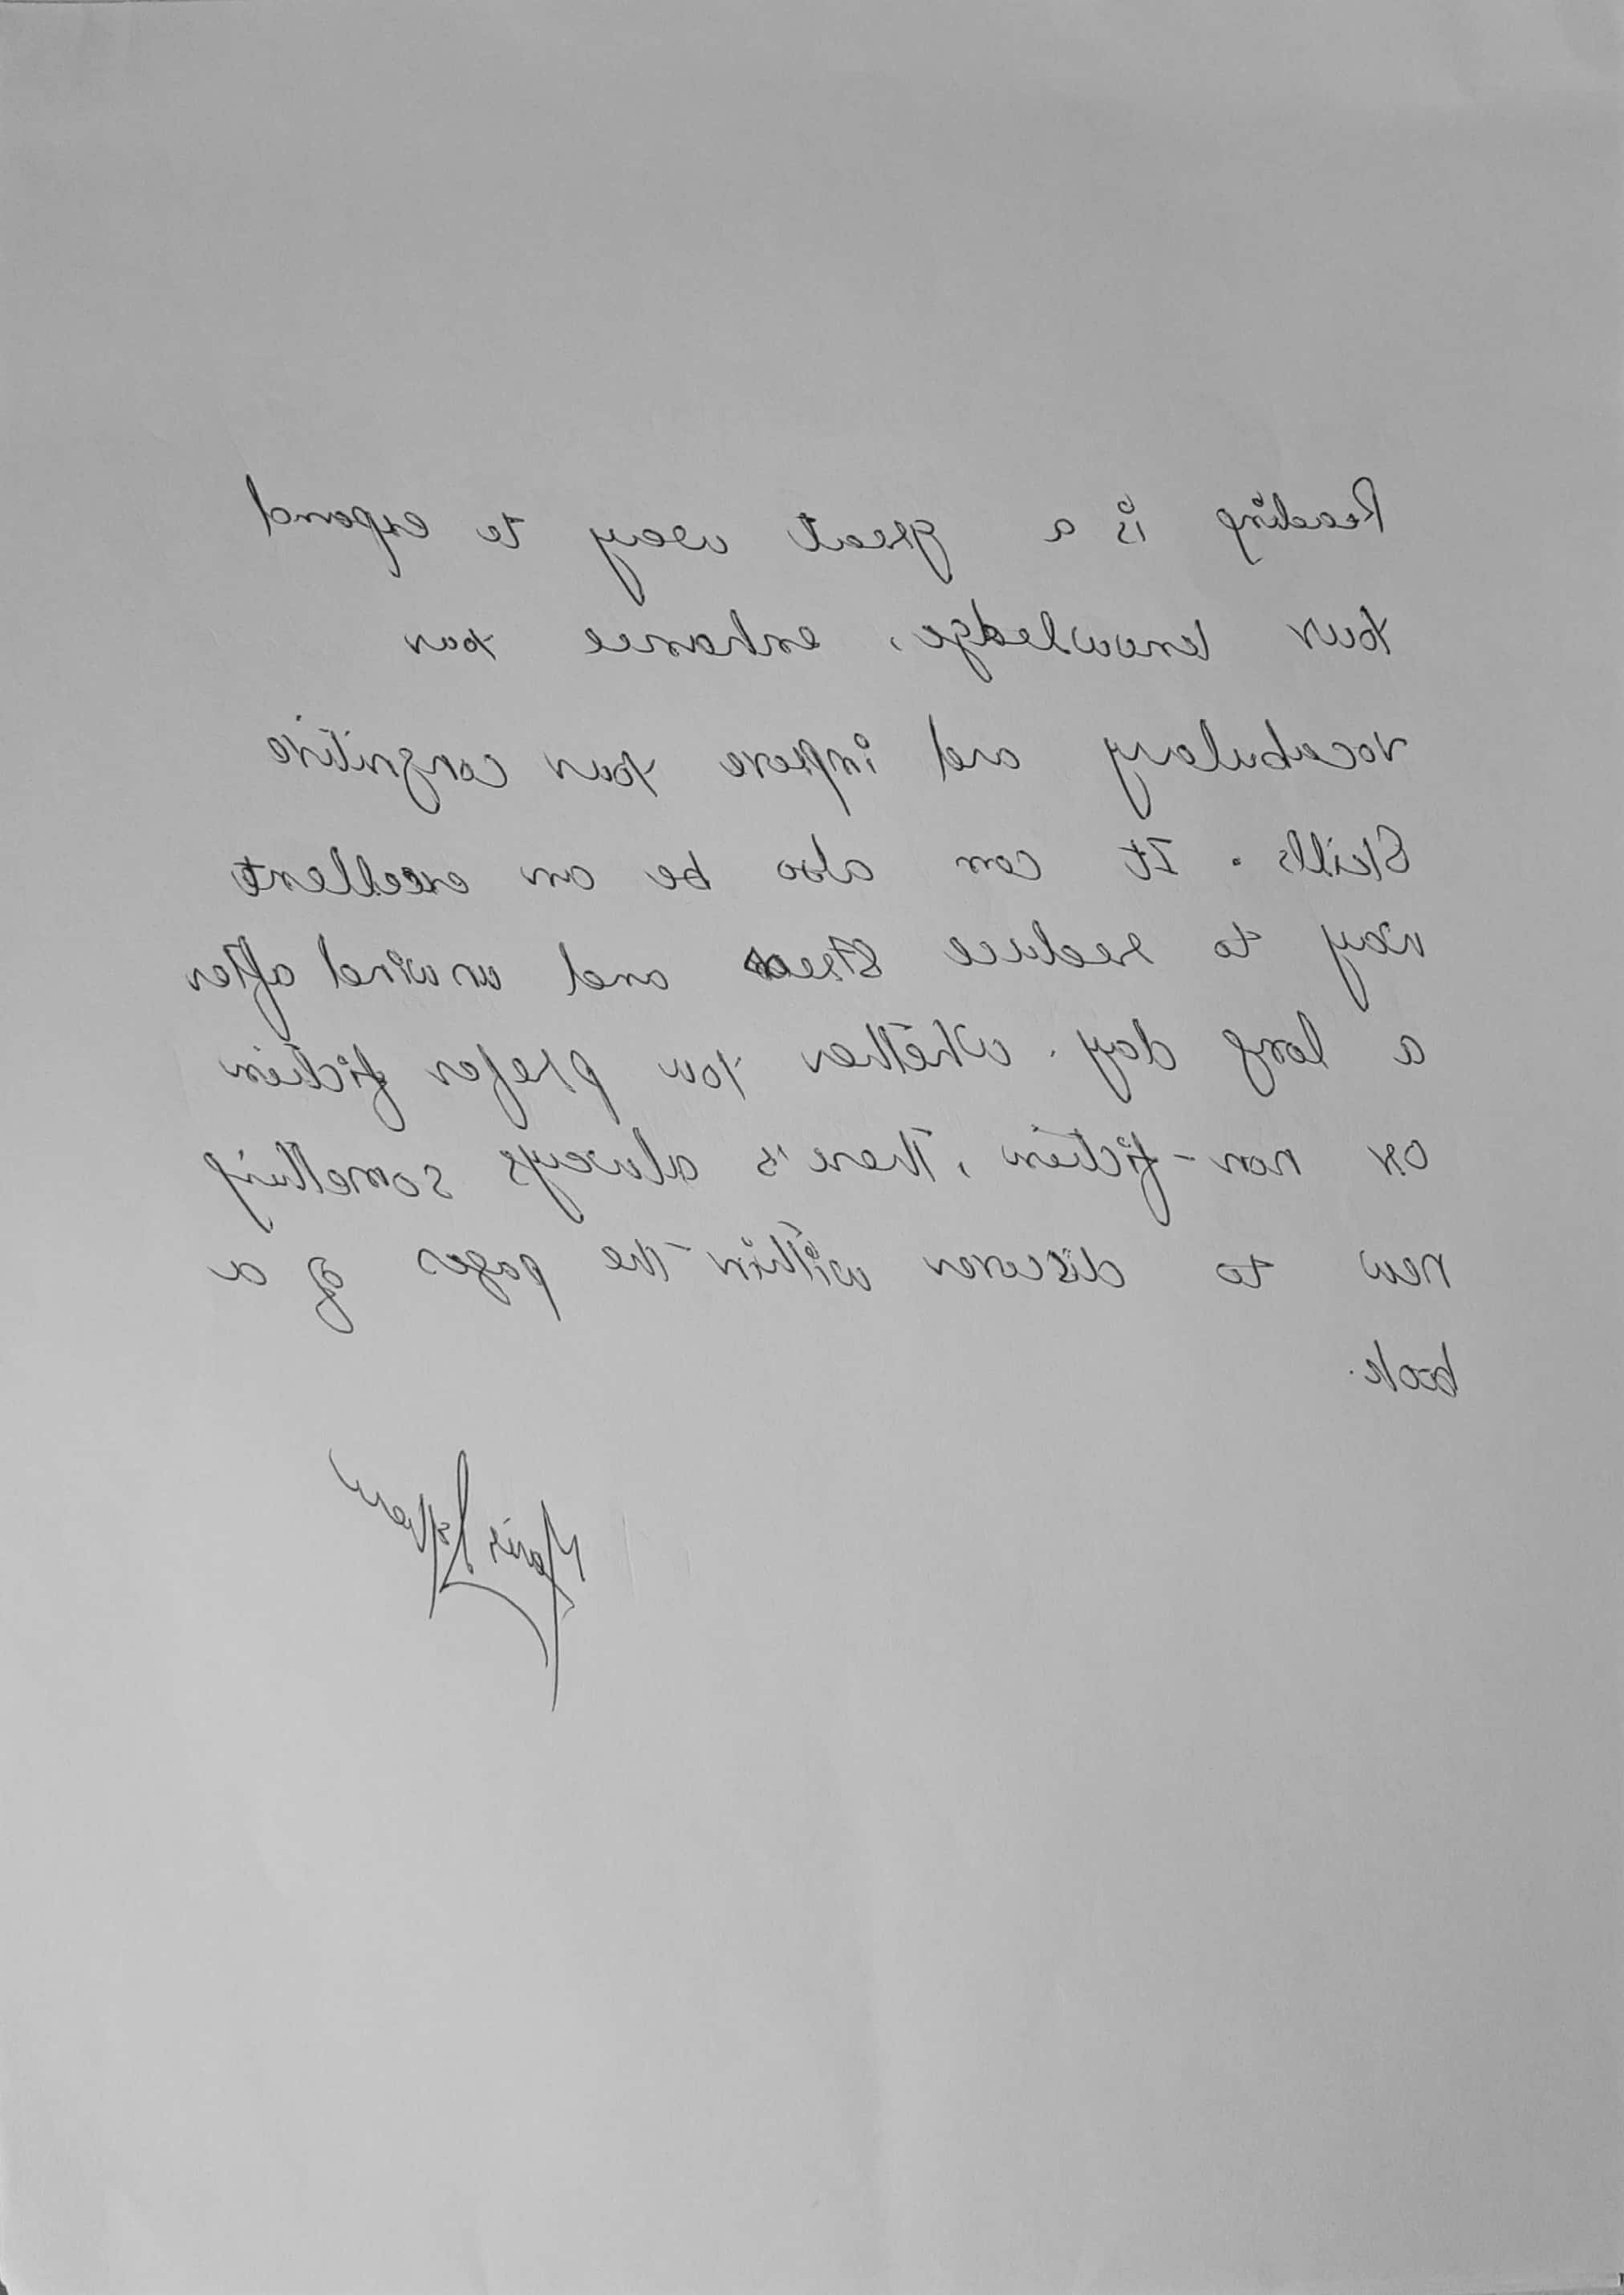 Reading is a great way to expand
your knowledge, enhance your
vocabulary and improve your congnitive
Skills. It can also be an excellent
way to reduce stress and unwind after
a long day. Whether you prefer fiction
or non-fiction, there's always something
new to discover within the pages of a
book.